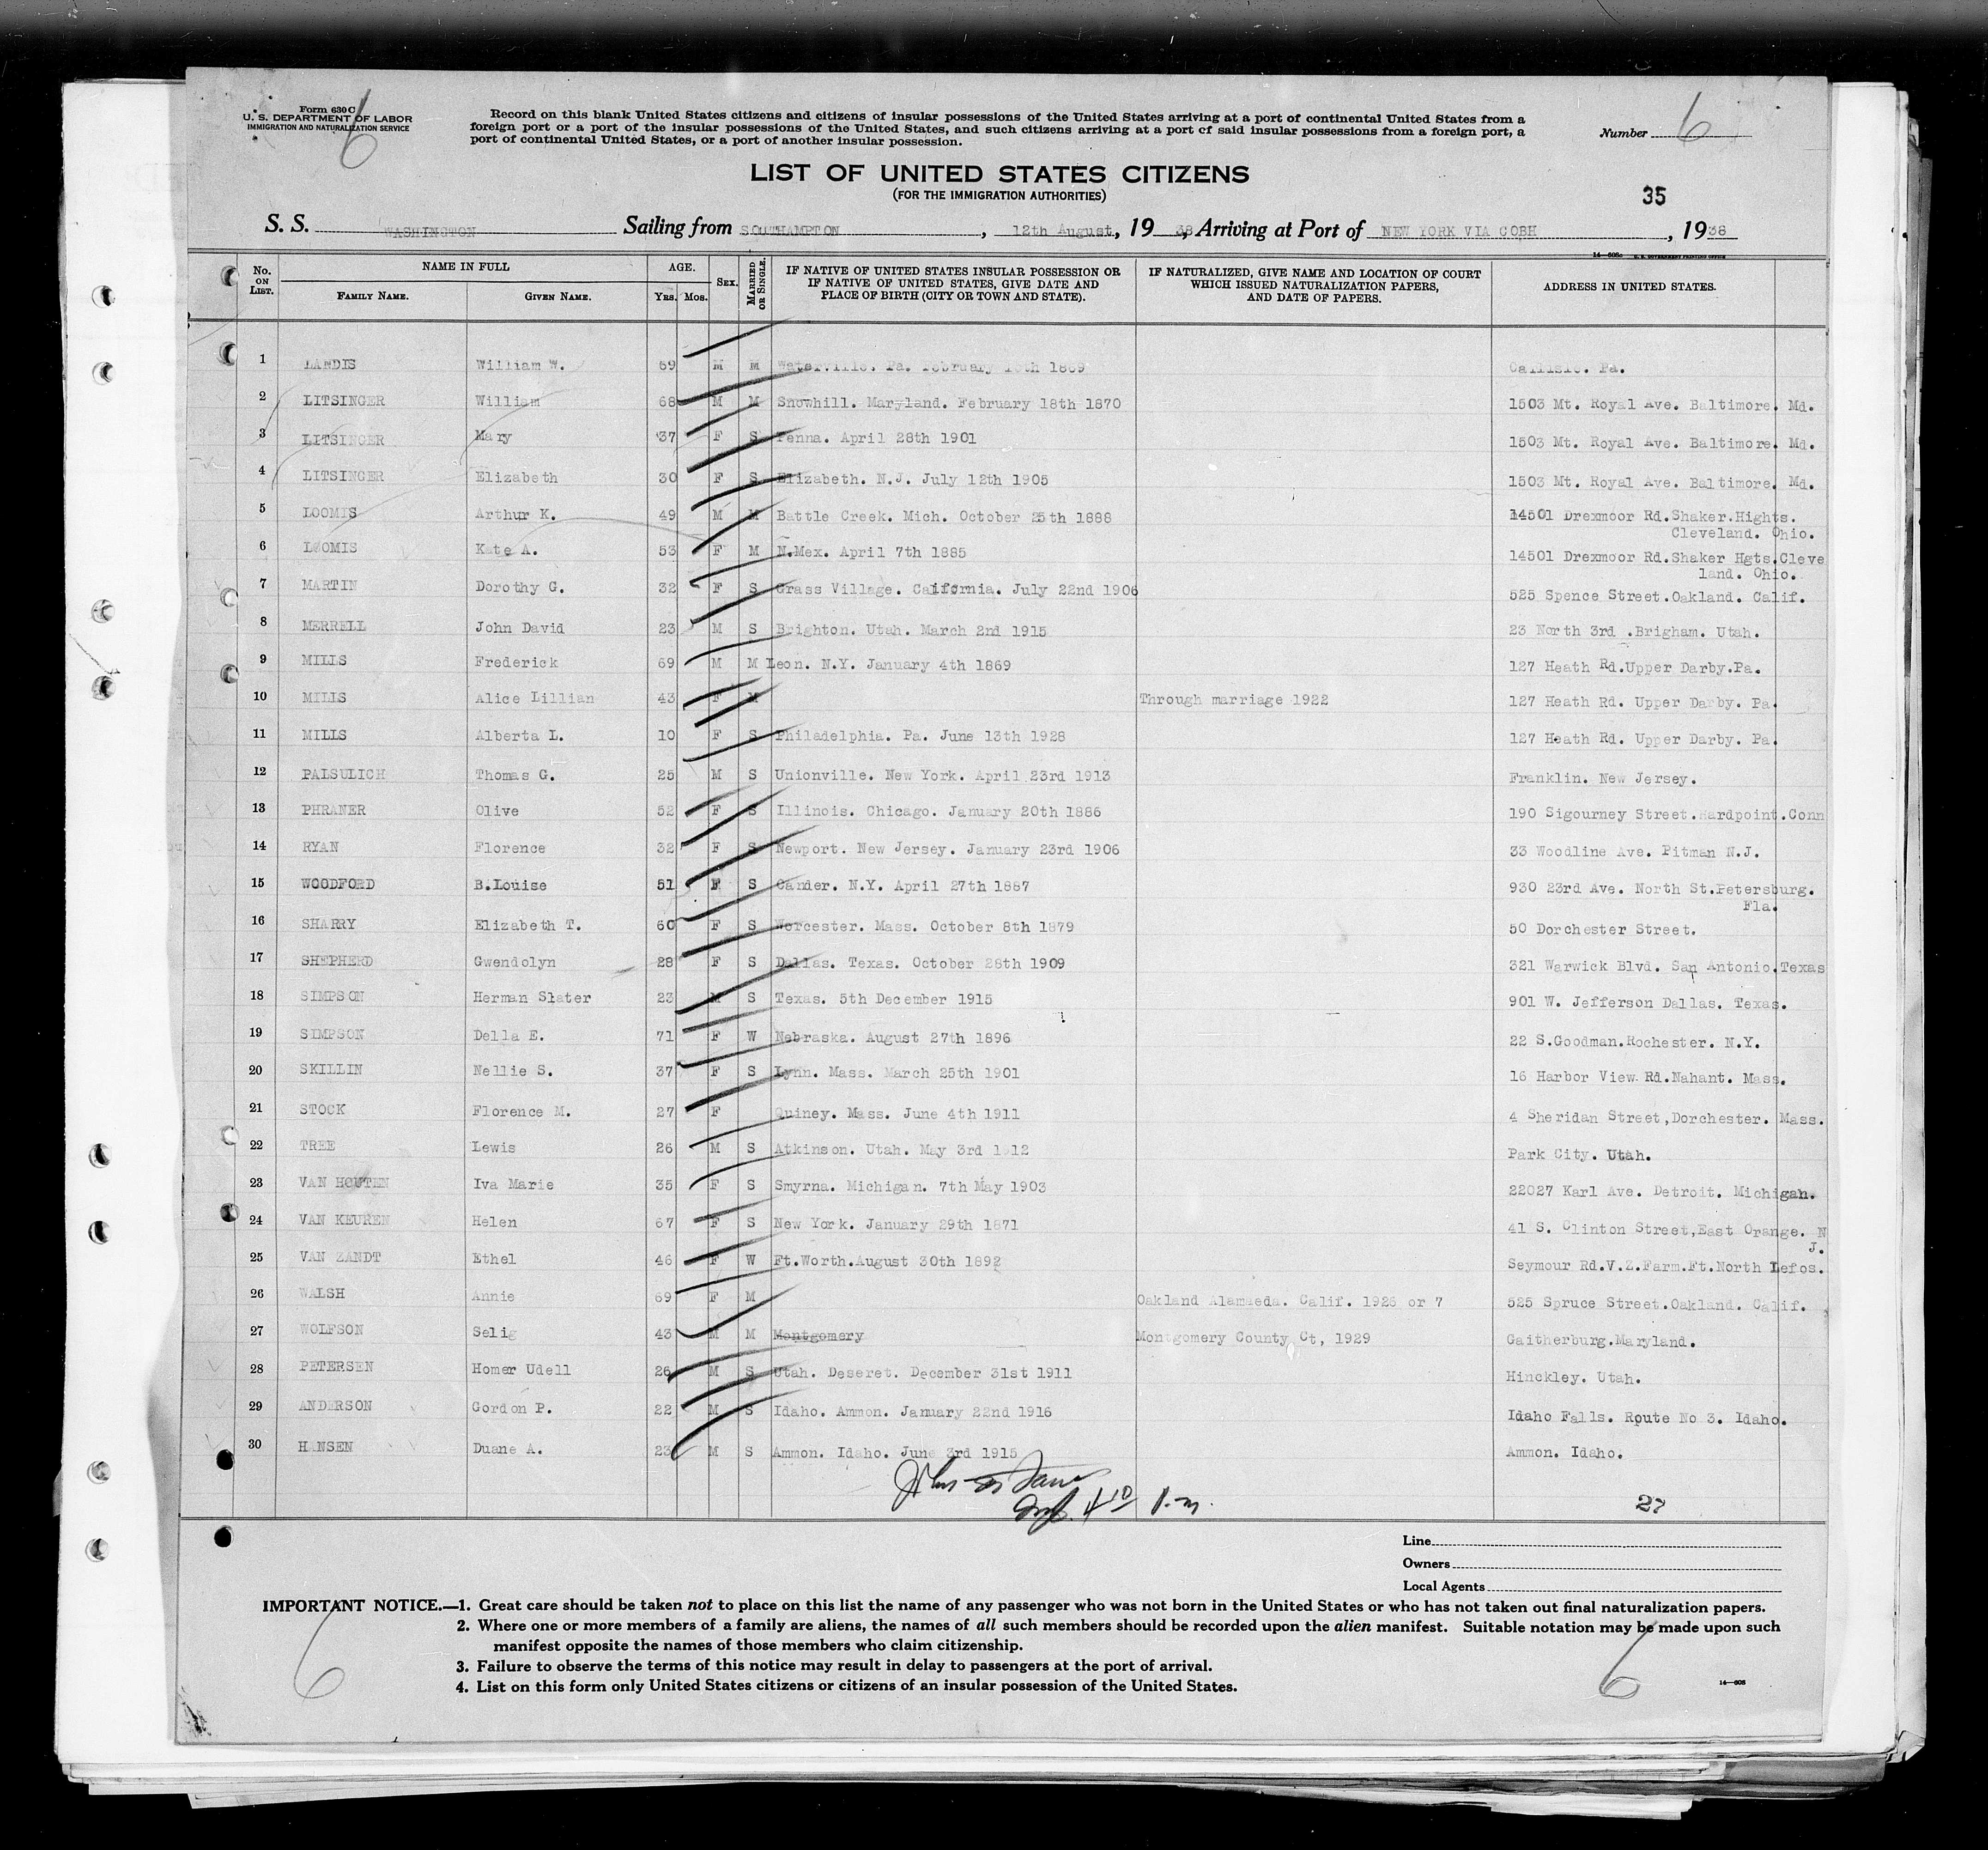 Form 630 C
U. S. DEPARTMENT OF LABOR
IMMIGRATION AND NATURALIZATION SERVICE
6
Record on this blank United States citizens and citizens of insular possessions of the United States arriving at a port of continental United States from a
foreign port or a port of the insular possessions of the United States, and such citizens arriving at a port of said insular possessions from a foreign port, a
port of continental United States, or a port of another insular possession.
Number 6
LIST OF UNITED STATES CITIZENS
(FOR THE IMMIGRATION AUTHORITIES)
35
S. S. WASHINGTON Sailing from SOUTHAMPTON, 12th August, 1938, Arriving at Port of NEW YORK VIA COBH, 1938
14—608c U. S. GOVERNMENT PRINTING OFFICE
No. ON LIST. NAME IN FULL FAMILY NAME. GIVEN NAME. AGE. YRS. MOS. SEX. MARRIED OR SINGLE. IF NATIVE OF UNITED STATES INSULAR POSSESSION OR IF NATIVE OF UNITED STATES, GIVE DATE AND PLACE OF BIRTH (CITY OR TOWN AND STATE). IF NATURALIZED, GIVE NAME AND LOCATION OF COURT WHICH ISSUED NATURALIZATION PAPERS, AND DATE OF PAPERS. ADDRESS IN UNITED STATES.
1 LANDIS William W. 69 M M Waterville. Pa. February 1869 Carlisle. Pa.
2 LITSINGER William 68 M M Snowhill. Maryland. February 18th 1870 1503 Mt. Royal Ave. Baltimore. Md.
3 LITSINGER Mary 37 F S Penna. April 28th 1901 1503 Mt. Royal Ave. Baltimore. Md.
4 LITSINGER Elizabeth 30 F S Elizabeth. N.J. July 12th 1905 1503 Mt. Royal Ave. Baltimore. Md.
5 LOOMIS Arthur K. 49 M M Battle Creek. Mich. October 25th 1888 14501 Drexmoor Rd.Shaker.Hights.
Cleveland. Ohio.
6 LOOMIS Kate A. 53 F M N.Mex. April 7th 1885 14501 Drexmoor Rd.Shaker Hgts.Cleve
land. Ohio.
7 MARTIN Dorothy G. 32 F S Grass Village. California. July 22nd 1906 525 Spence Street.Oakland. Calif.
8 MERRELL John David 23 M S Brighton. Utah. March 2nd 1915 23 North 3rd .Brigham. Utah.
9 MILLS Frederick 69 M M Leon. N.Y. January 4th 1869 127 Heath Rd.Upper Darby.Pa.
10 MILLS Alice Lillian 43 F M Through marriage 1922 127 Heath Rd. Upper Darby. Pa.
11 MILLS Alberta L. 10 F S Philadelphia. Pa. June 13th 1928 127 Heath Rd. Upper Darby. Pa.
12 PALSULICH Thomas G. 25 M S Unionville. New York. April 23rd 1913 Franklin. New Jersey.
13 PHRANER Olive 52 F S Illinois. Chicago. January 20th 1886 190 Sigourney Street.Hardpoint.Conn
14 RYAN Florence 32 F S Newport. New Jersey. January 23rd 1906 33 Woodline Ave. Pitman N.J.
15 WOODFORD B.Louise 51 F S Cander. N.Y. April 27th 1887 930 23rd Ave. North St.Petersburg.
Fla.
16 SHARRY Elizabeth T. 60 F S Worcester. Mass. October 8th 1879 50 Dorchester Street.
17 SHEPHERD Gwendolyn 28 F S Dallas. Texas. October 28th 1909 321 Warwick Blvd. San Antonio.Texas
18 SIMPSON Herman Slater 23 M S Texas. 5th December 1915 901 W. Jefferson Dallas. Texas.
19 SIMPSON Della E. 71 F W Nebraska. August 27th 1896 22 S.Goodman.Rochester. N.Y.
20 SKILLIN Nellie S. 37 F S Lynn. Mass. March 25th 1901 16 Harbor View Rd.Nahant. Mass.
21 STOCK Florence M. 27 F Quiney. Mass. June 4th 1911 4 Sheridan Street,Dorchester. Mass.
22 TREE Lewis 26 M S Atkinson. Utah. May 3rd 1912 Park City. Utah.
23 VAN HOUTEN Iva Marie 35 F S Smyrna. Michigan. 7th May 1903 22027 Karl Ave. Detroit. Michigan.
24 VAN KEUREN Helen 67 F S New York. January 29th 1871 41 S. Clinton Street,East Orange. N
J.
25 VAN ZANDT Ethel 46 F W Ft.Worth.August 30th 1892 Seymour Rd.V.Z.Farm.Ft.North Lefos.
26 WALSH Annie 69 F M Oakland Alamaeda. Calif. 1926 or 7 525 Spruce Street.Oakland. Calif.
27 WOLFSON Selig 43 M M Montgomery Montgomery County Ct, 1929 Gaitherburg.Maryland.
28 PETERSEN Homer Udell 26 M S Utah. Deseret. December 31st 1911 Hinckley. Utah.
29 ANDERSON Gordon P. 22 M S Idaho. Ammon. January 22nd 1916 Idaho Falls. Route No 3. Idaho.
30 HANSEN Duane A. 23 M S Ammon. Idaho. June 3rd 1915 Ammon. Idaho.
27
Line
Owners
Local Agents
IMPORTANT NOTICE.—1. Great care should be taken not to place on this list the name of any passenger who was not born in the United States or who has not taken out final naturalization papers.
2. Where one or more members of a family are aliens, the names of all such members should be recorded upon the alien manifest. Suitable notation may be made upon such
manifest opposite the names of those members who claim citizenship.
3. Failure to observe the terms of this notice may result in delay to passengers at the port of arrival.
4. List on this form only United States citizens or citizens of an insular possession of the United States.
6
6
14—608